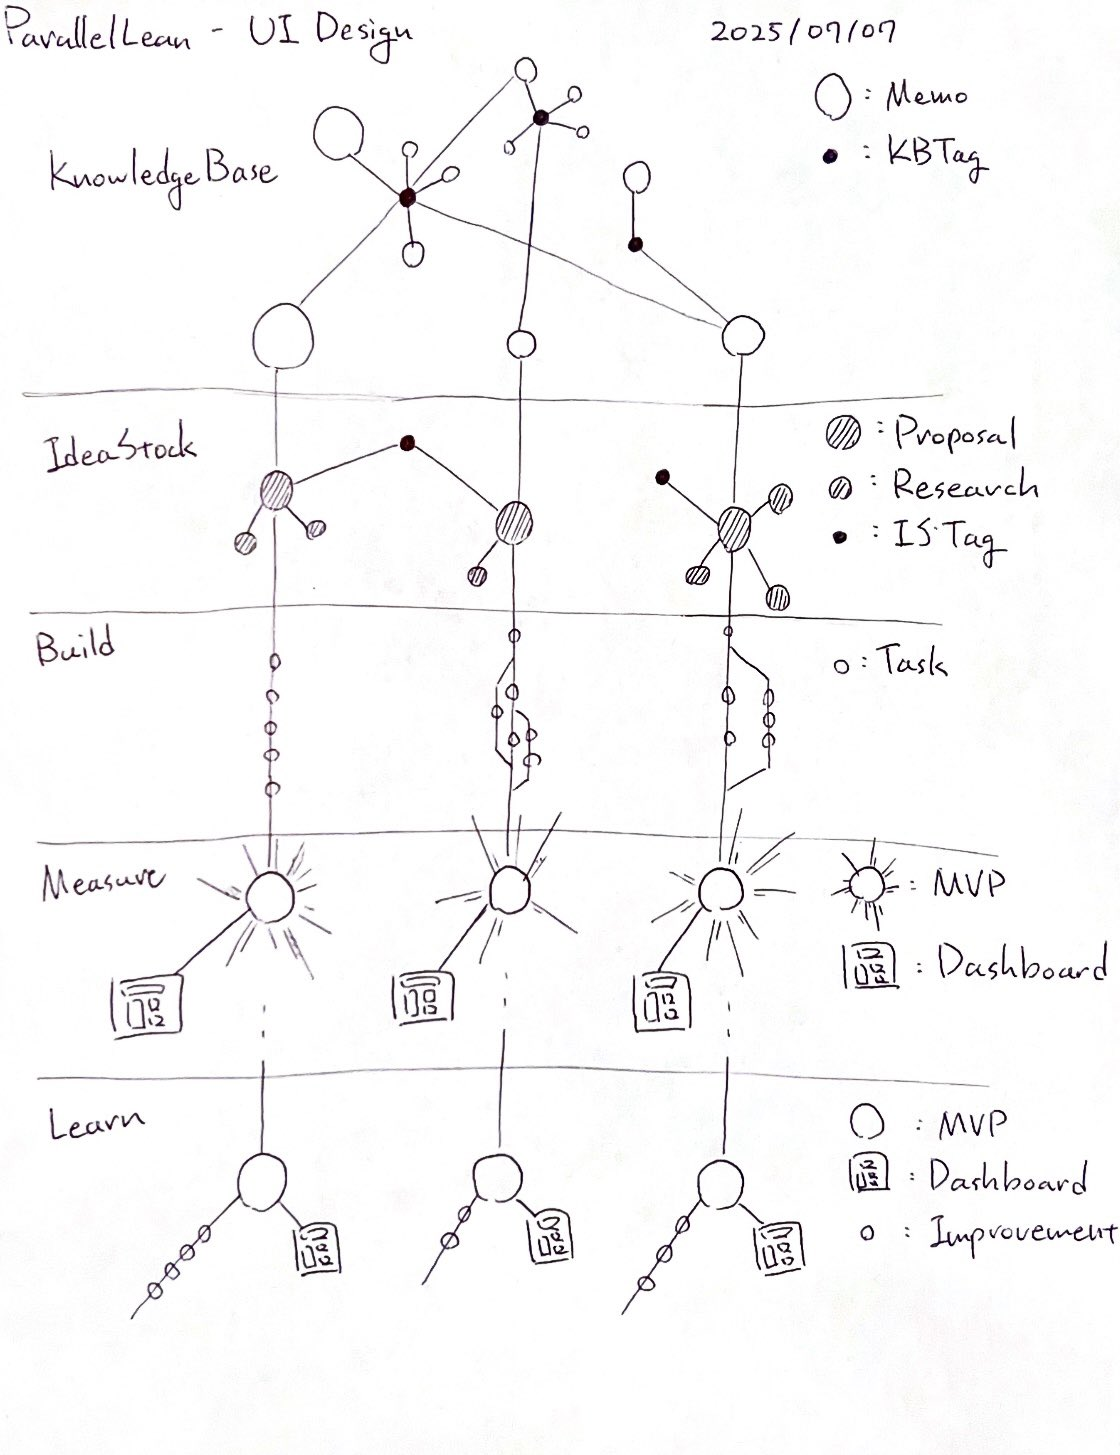 ParallelLean - UI Design
2025/07/07
: Memo
: KBTag
KnowledgeBase
IdeaStock
: Proposal
: Research
: IS Tag
Build
: Task
Measure
: MVP
: Dashboard
Learn
: MVP
: Dashboard
: Improvement